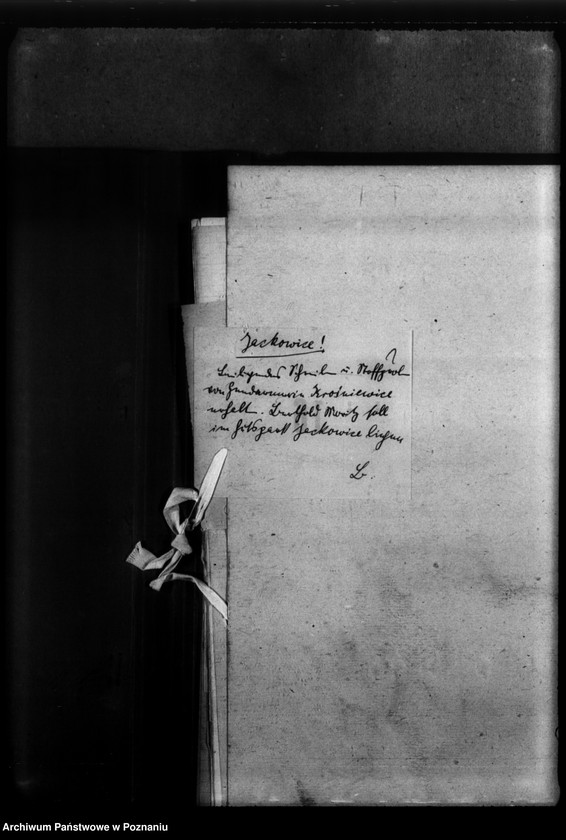 Jackowice!
Beiliegendes Schreiben u. Stoffprobe
von Gendarmerie Krośniewice
erhalt. Berthold Moritz soll
im Gutspark Jackowice liegen
L.
Archiwum Państwowe w Poznaniu